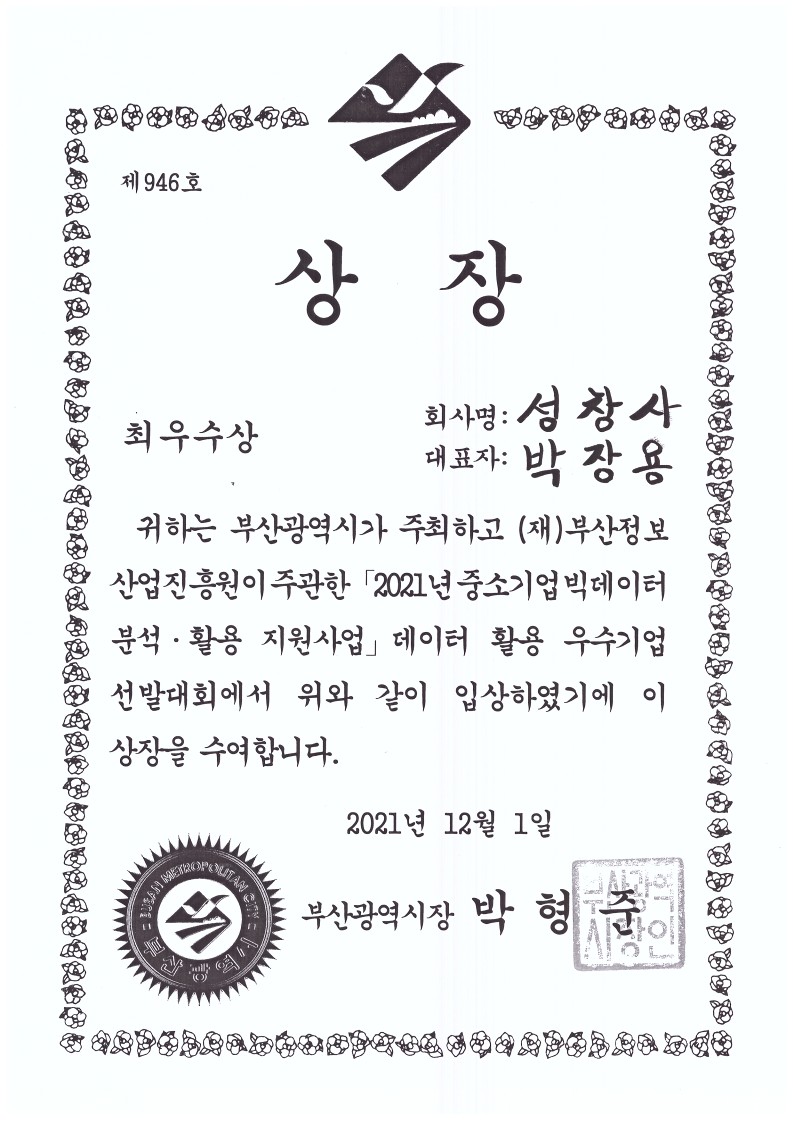 제946호
상 장
최우수상
회사명: 성창사
대표자: 박장용
귀하는 부산광역시가 주최하고 (재)부산정보
산업진흥원이 주관한 「2021년 중소기업 빅데이터
분석·활용 지원사업」 데이터 활용 우수기업
선발대회에서 위와 같이 입상하였기에 이
상장을 수여합니다.
2021년 12월 1일
부산광역시장 박형준
부산광역
시장인
BUSAN METROPOLITAN CITY
부산광역시